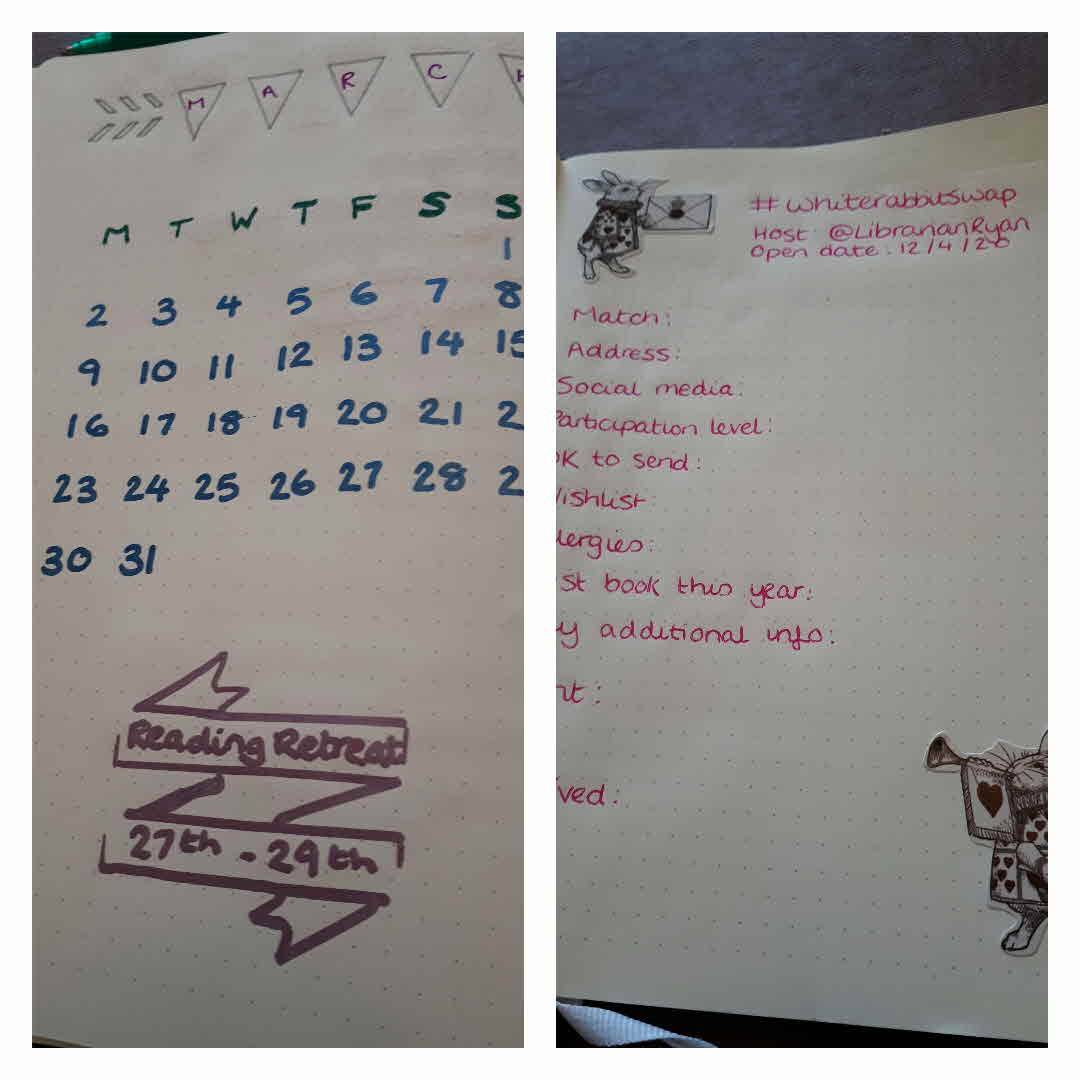 M A R C H
M T W T F S S
1
2 3 4 5 6 7 8
9 10 11 12 13 14 15
16 17 18 19 20 21 2
23 24 25 26 27 28 2
30 31
Reading Retreat
27th - 29th
#whiterabbitswap
Host: @LibrarianRyan
Open date: 12/4/20
Match:
Address:
Social media:
Participation level:
OK to send:
ishlist
lergies:
st book this year:
y additional info:
nt:
ved: